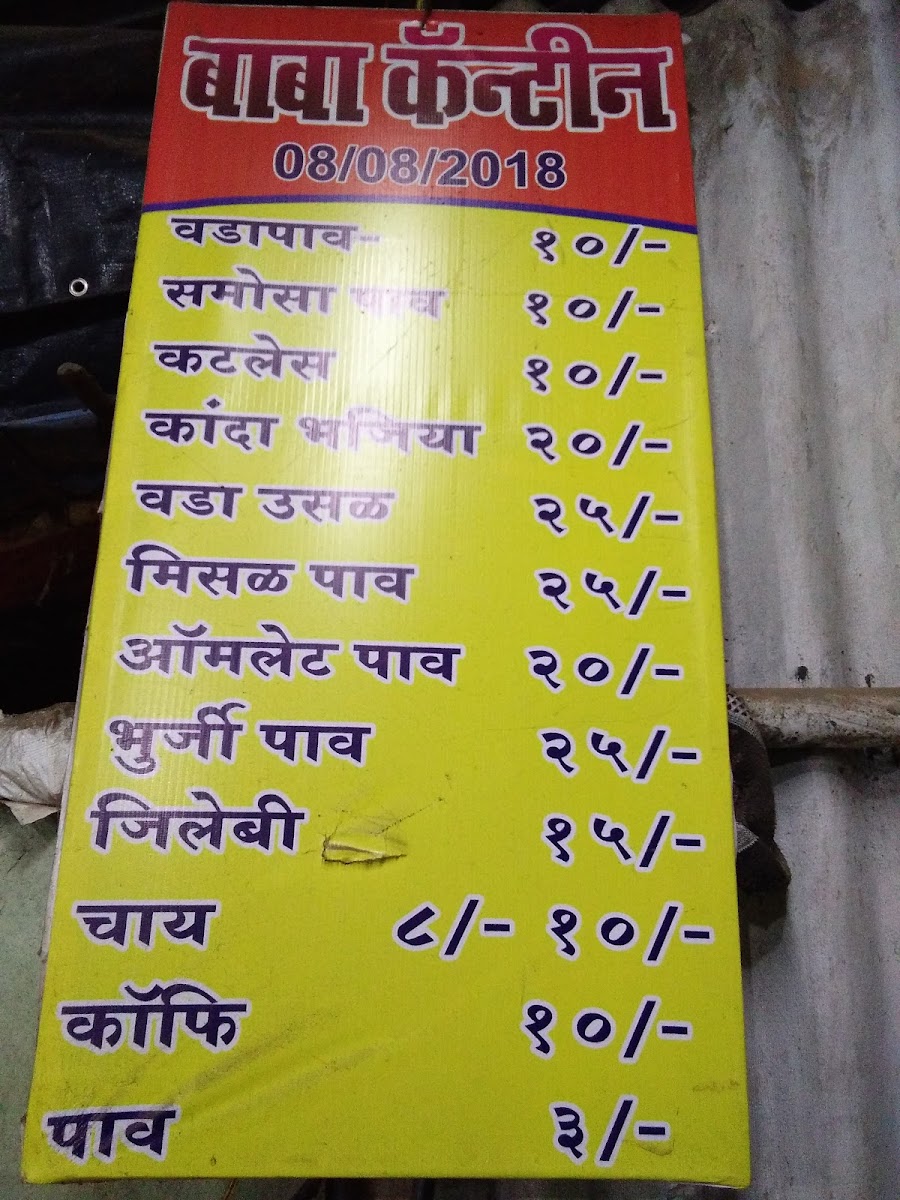 बाबा कॅन्टीन
08/08/2018
वडापाव- १०/-
समोसा पाव १०/-
कटलेस १०/-
कांदा भजिया २०/-
वडा उसळ २५/-
मिसळ पाव २५/-
ऑमलेट पाव २०/-
भुर्जी पाव २५/-
जिलेबी १५/-
चाय ८/- १०/-
कॉफि १०/-
पाव ३/-